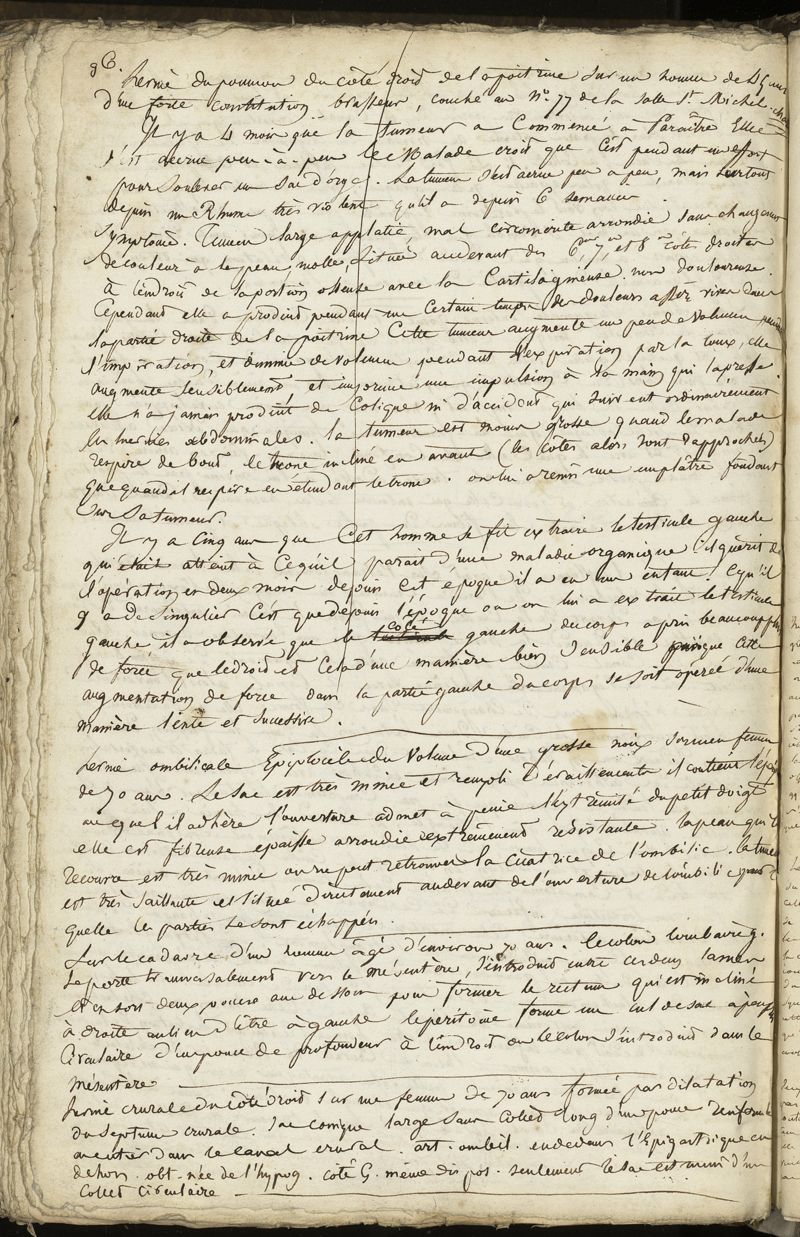 96.
hernie du poumon du côté droit de la poitrine sur un homme de 45 ans
d'une forte constitution brasseur, couché au N° 77 de la salle St Michel
Il y a 4 mois que la tumeur a commencé a Paraître Elle
s'est accrue peu-à-peu le Malade croit que C'est pendant un effort
pour Soulever un Sac d'orge. La tumeur s'est accrue peu a peu, mais surtout
depuis un Rhume très violent qu'il a depuis 6 semaines.
Symptome. Tumeur large applatie, mal circonscrite arrondie sans changement
de couleur à la peau, molle, située audevant des 6, 7, et 8 côtes droites
à l'endroit de la portion osseuse avec la Cartilagineuse. non douloureuse.
Cependant elle a produit pendant un Certain temps des douleurs assez vives dans
la partie droite de la poitrine Cette tumeur augmente un peu de Volume pendant
l'inspiration, et diminue de Volume pendant l'expiration par la toux, elle
augmente sensiblement et imprime une impulsion à la main qui la presse.
elle n'a jamais produit de Colique ni d'accident qui suivent ordinairement
les hernies abdominales. la tumeur est moins grosse quand le malade
respire de bout, le trone incliné en avant (les côtes alors sont rapprochées)
que quand il respire en étendant le trone. on lui a remis une emplâtre fondant
sur sa tumeur.
Il y a Cinq ans que Cet homme se fit extraire le testicule gauche
qui était atteint à Ce qu'il parait d'une maladie organique il guérit de
l'opération en deux mois depuis cet epoque il a eu un enfant. Ce qu'il
y a de Singulier C'est que depuis l'époque ou on lui a extrait le testicule
gauche il a observée que le côté gauche du corps a pris beaucoup plus
de force que le droit et Cela d'une manière bien sensible quoique Cette
augmentation de force dans la partie gauche du corps se soit opérée d'une
manière lente et successive.
hernie ombilicale Epiplocèle du Volume d'une grosse noix sur une femme
de 70 ans. Le Sac est très mince et rempli d'éraillements il contient l'épiploon
auquel il adhère l'ouverture admet à peine l'extrémité du petit doigt
elle est fibreuse épaisse arrondie extrêmement résistante. la peau qui la
recouvre est très mince on ne peut retrouver la cicatrice de l'ombilic. la tumeur
est très saillante et située directement audevant de l'ouverture de l'ombilic par la
quelle les parties se sont échappées.
Sur le cadavre d'un homme âgé d'environ 70 ans. le colon lombaire g.
se porte transversalement vers le mésentère, s'introduit entre ces deux lames
et en sort deux pouces au dessous pour former le rectum qui est incliné
à droite au lieu d'être à gauche le péritoine forme un cul de sac à peu près
Circulaire d'un pouce de profondeur à l'endroit ou le colon s'introduit dans le
mésentère
hernie crurale du côté droit sur une femme de 70 ans formée par dilatation
du septum crurale. Sac conique large sans Collet long d'un pouce renfermé
en entier dans le canal crural. art. ombil. en dedans l'Epigastrique en
dehors. obt. née de l'hypog. côté G. même dispos. seulement le sac est muni d'un
Collet Circulaire